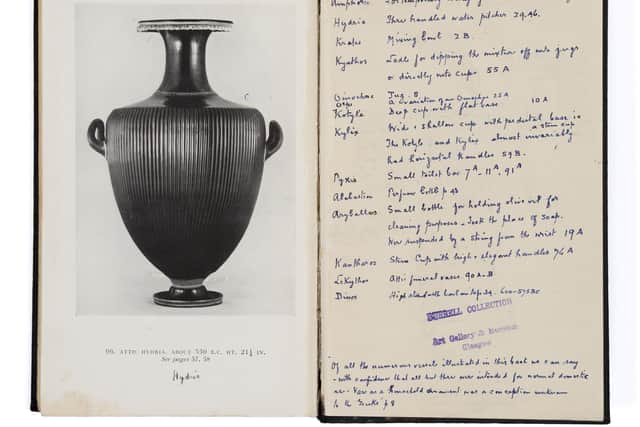 96. ATTIC HYDRIA. ABOUT 550 B.C. HT. 21¼ IN.
See pages 57, 58
Hydria
Hydria Three handled water pitcher 29, 46.
Krater Mixing bowl 2 B.
Kyathos Ladle for dipping the mixture off into jugs
or directly into cups 55 A
Oinochoe Jug. 8
Olpe A variation of an Oinochoe 25 A
Kotyle Deep cup with flat base 10 A
Kylix Wide & shallow cup with pedestal base in
a stem cup
The Kotyle and Kylix almost invariably
had horizontal handles 59 B.
Pyxis Small toilet box 7ᴬ, 11ᴬ, 91ᴬ
Alabastron Perfume bottle p 48
Aryballos Small bottle for holding olive oil for
cleaning purposes - took the place of soap.
Was suspended by a string from the wrist 19 A
Kantharos Stem Cup with high & elegant handles 76 A
Lekythos Attic funeral vases 90 A-B
Dinos
BURRELL COLLECTION
Art Gallery & Museum
Glasgow
Of all the numerous vessels illustrated in this book we can say
with confidence that all but three were intended for normal domestic
use - Vase as a household ornament was a conception unknown
to the Greeks p 8